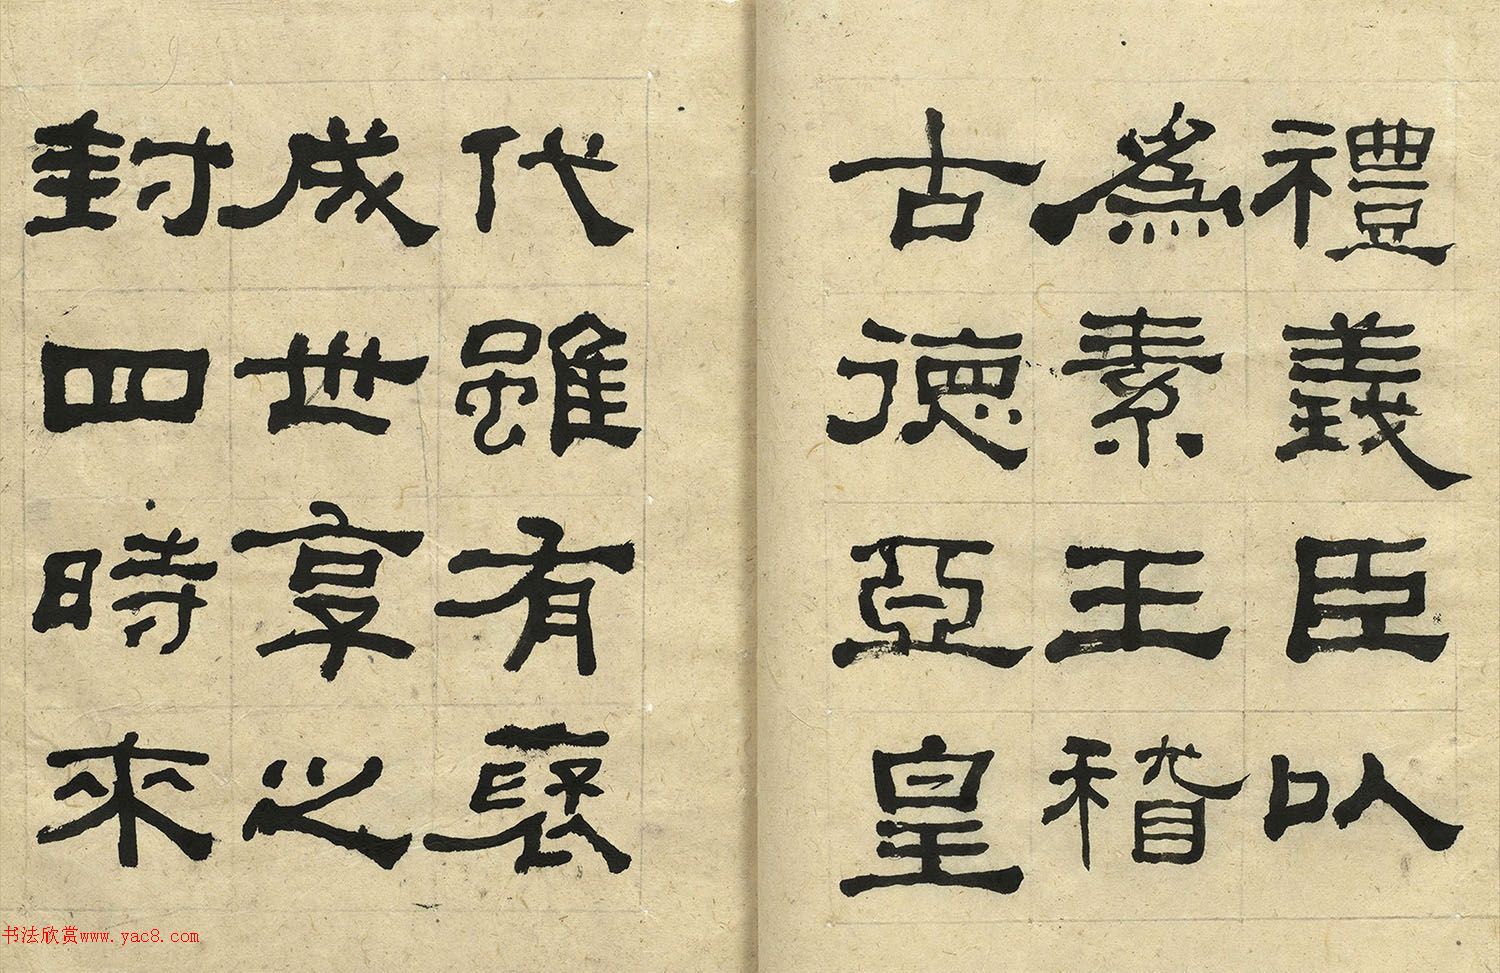 禮義臣以
為素王稽
古德亞皇
代雖有褒
成世享之
封四時來
书法欣赏www.yac8.com